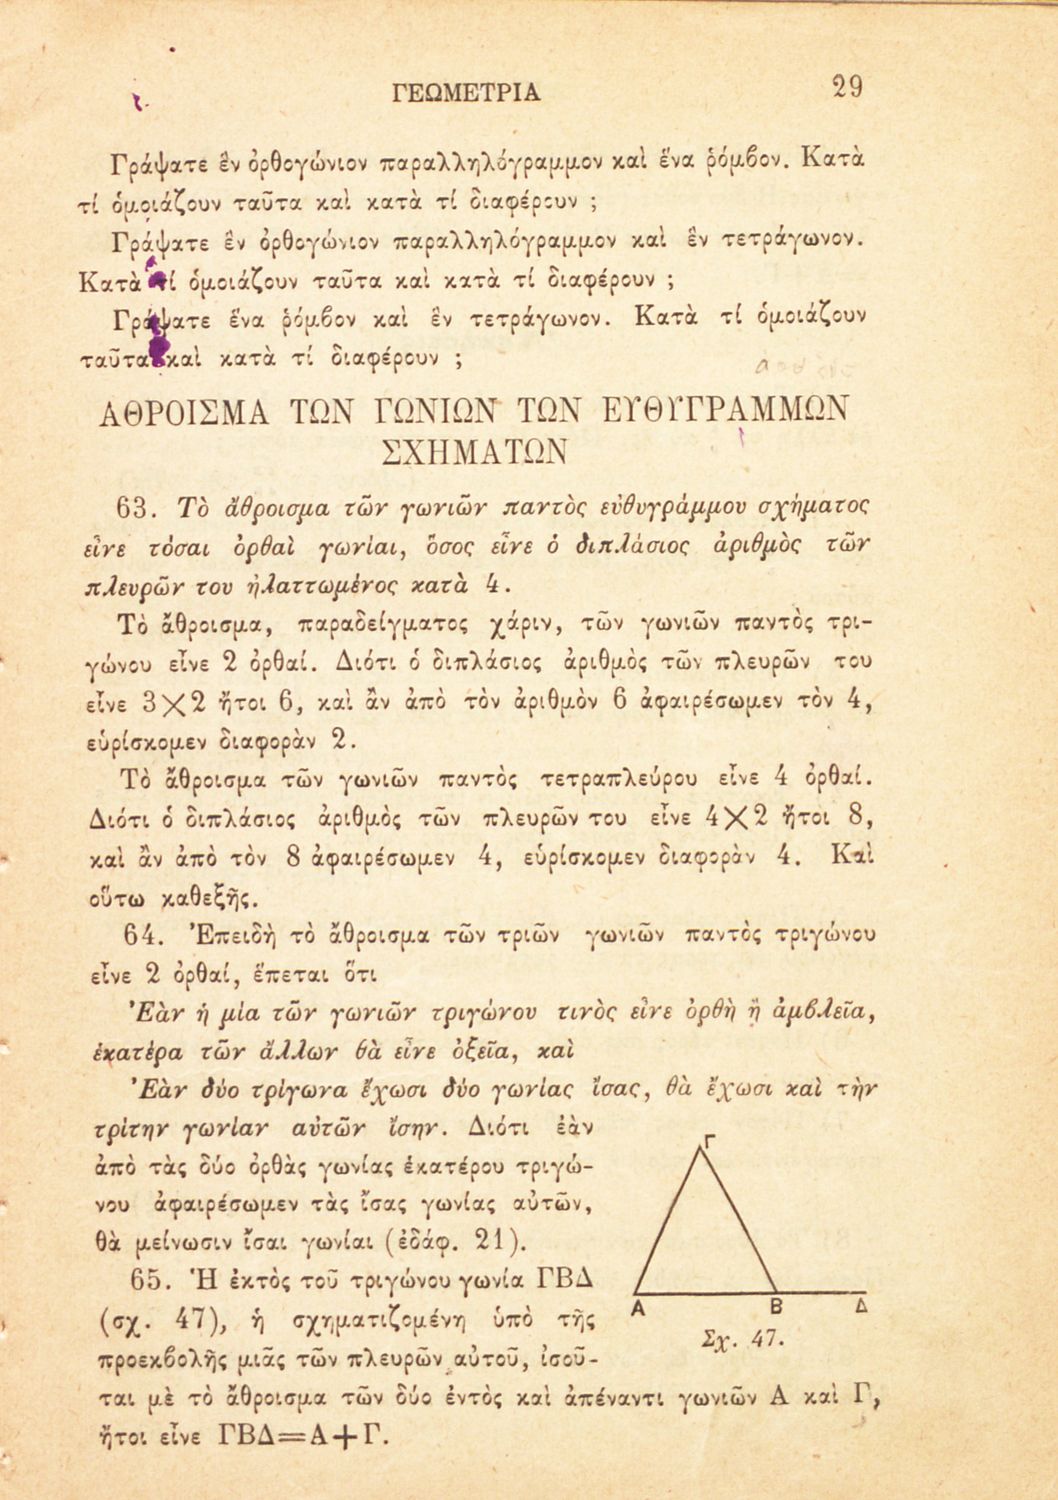 ΓΕΩΜΕΤΡΙΑ 29
Γράψατε ἓν ὀρθογώνιον παραλληλόγραμμον καὶ ἕνα ῥόμβον. Κατὰ
τί ὁμοιάζουν ταῦτα καὶ κατὰ τί διαφέρουν ;
Γράψατε ἓν ὀρθογώνιον παραλληλόγραμμον καὶ ἓν τετράγωνον.
Κατὰ τί ὁμοιάζουν ταῦτα καὶ κατὰ τί διαφέρουν ;
Γράψατε ἕνα ῥόμβον καὶ ἓν τετράγωνον. Κατὰ τί ὁμοιάζουν
ταῦτα καὶ κατὰ τί διαφέρουν ;
ΑΘΡΟΙΣΜΑ ΤΩΝ ΓΩΝΙΩΝ ΤΩΝ ΕΥΘΥΓΡΑΜΜΩΝ
ΣΧΗΜΑΤΩΝ
63. Τὸ ἄθροισμα τῶν γωνιῶν παντὸς εὐθυγράμμου σχήματος
εἶνε τόσαι ὀρθαὶ γωνίαι, ὅσος εἶνε ὁ διπλάσιος ἀριθμὸς τῶν
πλευρῶν του ἠλαττωμένος κατὰ 4.
Τὸ ἄθροισμα, παραδείγματος χάριν, τῶν γωνιῶν παντὸς τρι-
γώνου εἶνε 2 ὀρθαί. Διότι ὁ διπλάσιος ἀριθμὸς τῶν πλευρῶν του
εἶνε 3×2 ἤτοι 6, καὶ ἂν ἀπὸ τὸν ἀριθμὸν 6 ἀφαιρέσωμεν τὸν 4,
εὑρίσκομεν διαφορὰν 2.
Τὸ ἄθροισμα τῶν γωνιῶν παντὸς τετραπλεύρου εἶνε 4 ὀρθαί.
Διότι ὁ διπλάσιος ἀριθμὸς τῶν πλευρῶν του εἶνε 4×2 ἤτοι 8,
καὶ ἂν ἀπὸ τὸν 8 ἀφαιρέσωμεν 4, εὑρίσκομεν διαφορὰν 4. Καὶ
οὕτω καθεξῆς.
64. Ἐπειδὴ τὸ ἄθροισμα τῶν τριῶν γωνιῶν παντὸς τριγώνου
εἶνε 2 ὀρθαί, ἕπεται ὅτι
Ἐὰν ἡ μία τῶν γωνιῶν τριγώνου τινὸς εἶνε ὀρθὴ ἢ ἀμβλεῖα,
ἑκατέρα τῶν ἄλλων θὰ εἶνε ὀξεῖα, καὶ
Ἐὰν δύο τρίγωνα ἔχωσι δύο γωνίας ἴσας, θὰ ἔχωσι καὶ τὴν
τρίτην γωνίαν αὐτῶν ἴσην. Διότι ἐὰν
ἀπὸ τὰς δύο ὀρθὰς γωνίας ἑκατέρου τριγώ-
νου ἀφαιρέσωμεν τὰς ἴσας γωνίας αὐτῶν,
θὰ μείνωσιν ἴσαι γωνίαι (ἐδάφ. 21).
65. Ἡ ἐκτὸς τοῦ τριγώνου γωνία ΓΒΔ
(σχ. 47), ἡ σχηματιζομένη ὑπὸ τῆς
προεκβολῆς μιᾶς τῶν πλευρῶν αὐτοῦ, ἰσοῦ-
ται μὲ τὸ ἄθροισμα τῶν δύο ἐντὸς καὶ ἀπέναντι γωνιῶν Α καὶ Γ,
ἤτοι εἶνε ΓΒΔ=Α+Γ.
Γ
Α Β Δ
Σχ. 47.